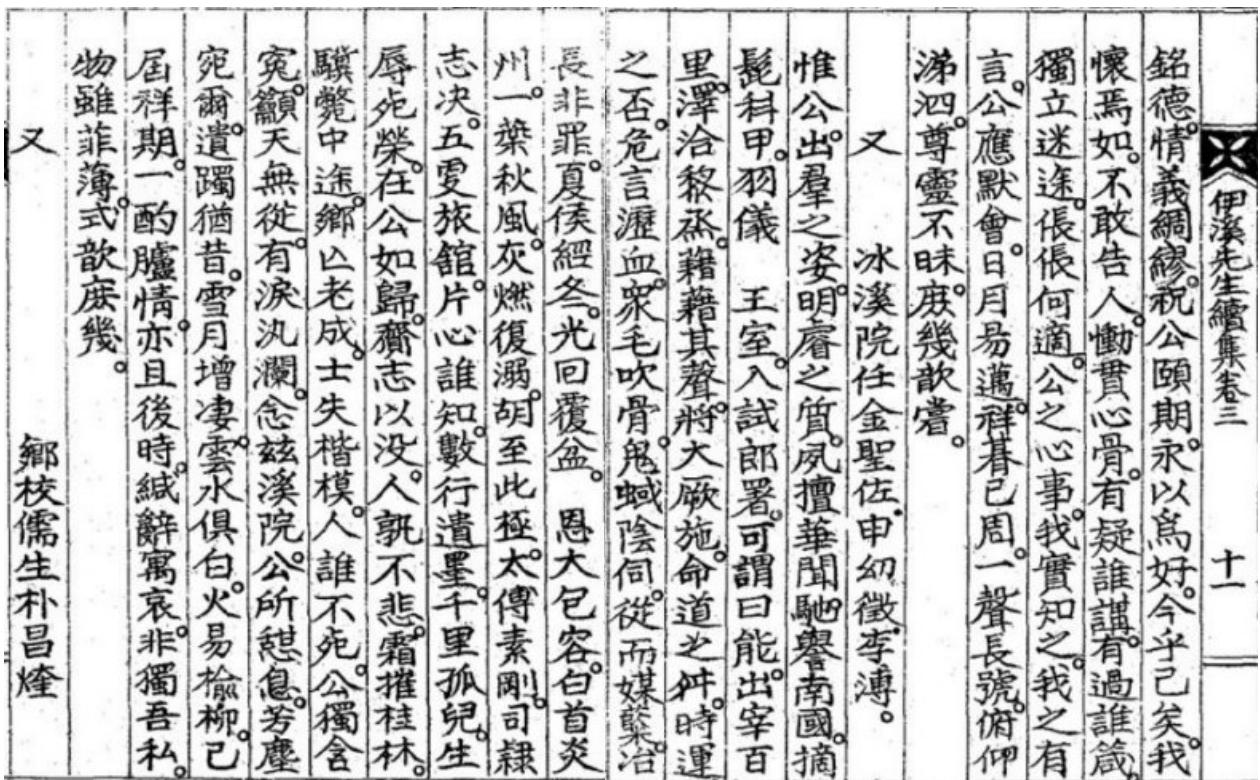 伊溪先生續集卷三 十一
銘德。情義綢繆。祝公頤期。永以爲好。今乎已矣。我
懷焉如。不敢告人。慟貫心骨。有疑誰講。有過誰箴。
獨立迷途。倀倀何適。公之心事。我實知之。我之有
言。公應默會。日月易邁。祥朞已周。一聲長號。俯仰
涕泗。尊靈不昧。庶幾歆嘗。
又 冰溪院任金聖佐,申幼徵,李溥。
惟公。出羣之姿。明睿之質。夙擅華聞。馳譽南國。摘
髭科甲。羽儀 王室。入試郎署。可謂曰能。出宰百
里。澤洽黎烝。藉藉其聲。將大厥施。命道之舛。時運
之否。危言瀝血。衆毛吹骨。鬼蜮陰伺。從而媒糵。冶
長非罪。夏侯經冬。光回覆盆。 恩大包容。白首炎
州。一葉秋風。灰燃復溺。胡至此極。太傅素剛。司隷
志决。五雯旅館。片心誰知。數行遺墨。千里孤兒。生
辱死榮。在公如歸。齎志以没。人孰不悲。霜摧桂林。
驥斃中途。鄉亾老成。士失楷模。人誰不死。公獨含
寃。籲天無從。有淚汍瀾。念玆溪院。公所憇息。芳塵
宛爾。遺躅猶昔。雪月增凄。雲水俱白。火易楡柳。已
屆祥期。一酌臚情。亦且後時。緘辭寓哀。非獨吾私。
物雖菲薄。式歆庶幾。
又 鄉校儒生朴昌煃